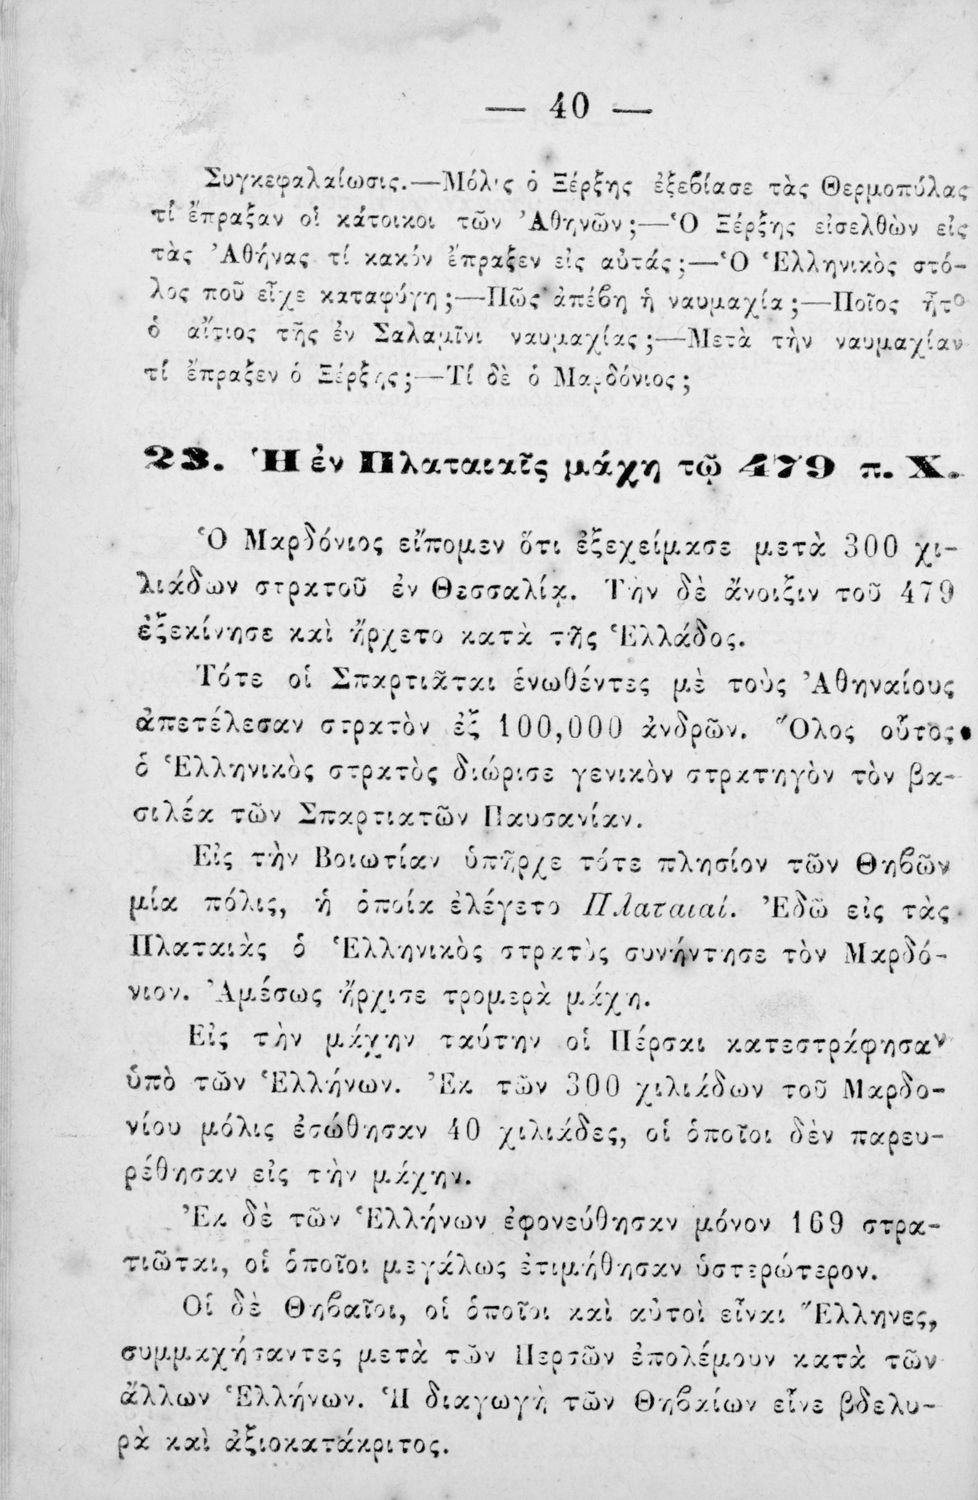 — 40 —
Συγκεφαλαίωσις.—Μόλις ὁ Ξέρξης ἐξεβίασε τὰς Θερμοπύλας
τί ἔπραξαν οἱ κάτοικοι τῶν Ἀθηνῶν;—Ὁ Ξέρξης εἰσελθὼν εἰς
τὰς Ἀθήνας τί κακὸν ἔπραξεν εἰς αὐτάς;—Ὁ Ἑλληνικὸς στό-
λος ποῦ εἶχε καταφύγῃ;—Πῶς ἀπέβη ἡ ναυμαχία;—Ποῖος ἦτο
ὁ αἴτιος τῆς ἐν Σαλαμῖνι ναυμαχίας;—Μετὰ τὴν ναυμαχίαν
τί ἔπραξεν ὁ Ξέρξης;—Τί δὲ ὁ Μαρδόνιος;
23. Ἡ ἐν Πλαταιαῖς μάχη τῷ 479 π. Χ.
Ὁ Μαρδόνιος εἴπομεν ὅτι ἐξεχείμασε μετὰ 300 χι-
λιάδων στρατοῦ ἐν Θεσσαλίᾳ. Τὴν δὲ ἄνοιξιν τοῦ 479
ἐξεκίνησε καὶ ἤρχετο κατὰ τῆς Ἑλλάδος.
Τότε οἱ Σπαρτιᾶται ἑνωθέντες μὲ τοὺς Ἀθηναίους
ἀπετέλεσαν στρατὸν ἐξ 100,000 ἀνδρῶν. Ὅλος οὗτος
ὁ Ἑλληνικὸς στρατὸς διώρισε γενικὸν στρατηγὸν τὸν βα-
σιλέα τῶν Σπαρτιατῶν Παυσανίαν.
Εἰς τὴν Βοιωτίαν ὑπῆρχε τότε πλησίον τῶν Θηβῶν
μία πόλις, ἡ ὁποία ἐλέγετο Πλαταιαί. Ἐδῶ εἰς τὰς
Πλαταιὰς ὁ Ἑλληνικὸς στρατὸς συνήντησε τὸν Μαρδό-
νιον. Ἀμέσως ἤρχισε τρομερὰ μάχη.
Εἰς τὴν μάχην ταύτην οἱ Πέρσαι κατεστράφησαν
ὑπὸ τῶν Ἑλλήνων. Ἐκ τῶν 300 χιλιάδων τοῦ Μαρδο-
νίου μόλις ἐσώθησαν 40 χιλιάδες, οἱ ὁποῖοι δὲν παρευ-
ρέθησαν εἰς τὴν μάχην.
Ἐκ δὲ τῶν Ἑλλήνων ἐφονεύθησαν μόνον 169 στρα-
τιῶται, οἱ ὁποῖοι μεγάλως ἐτιμήθησαν ὑστερώτερον.
Οἱ δὲ Θηβαῖοι, οἱ ὁποῖοι καὶ αὐτοὶ εἶναι Ἕλληνες,
συμμαχήσαντες μετὰ τῶν Περσῶν ἐπολέμουν κατὰ τῶν
ἄλλων Ἑλλήνων. Ἡ διαγωγὴ τῶν Θηβαίων εἶνε βδελυ-
ρὰ καὶ ἀξιοκατάκριτος.